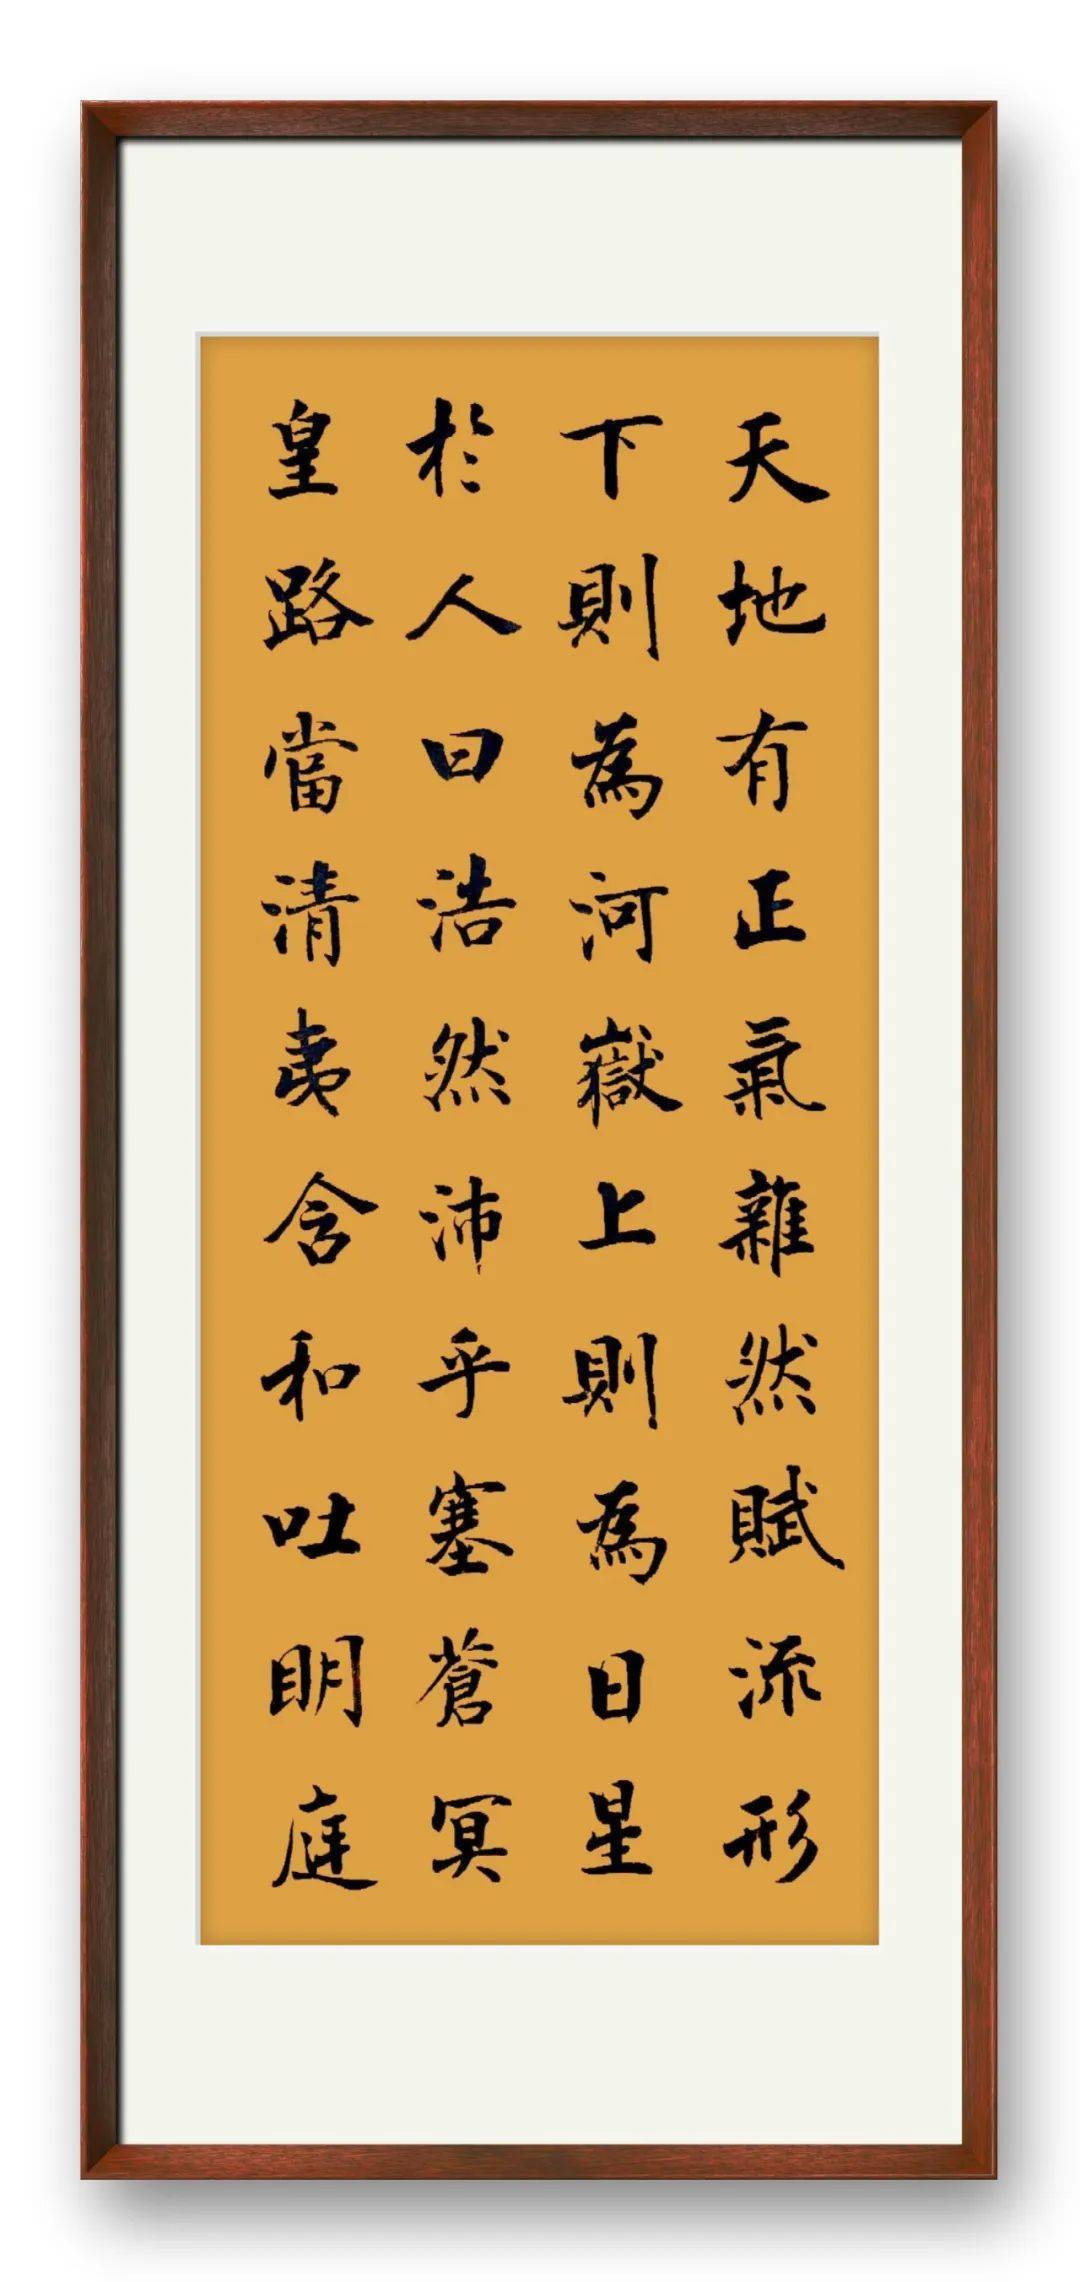 天地有正氣雜然賦流形
下則為河嶽上則為日星
於人曰浩然沛乎塞蒼冥
皇路當清夷含和吐明庭